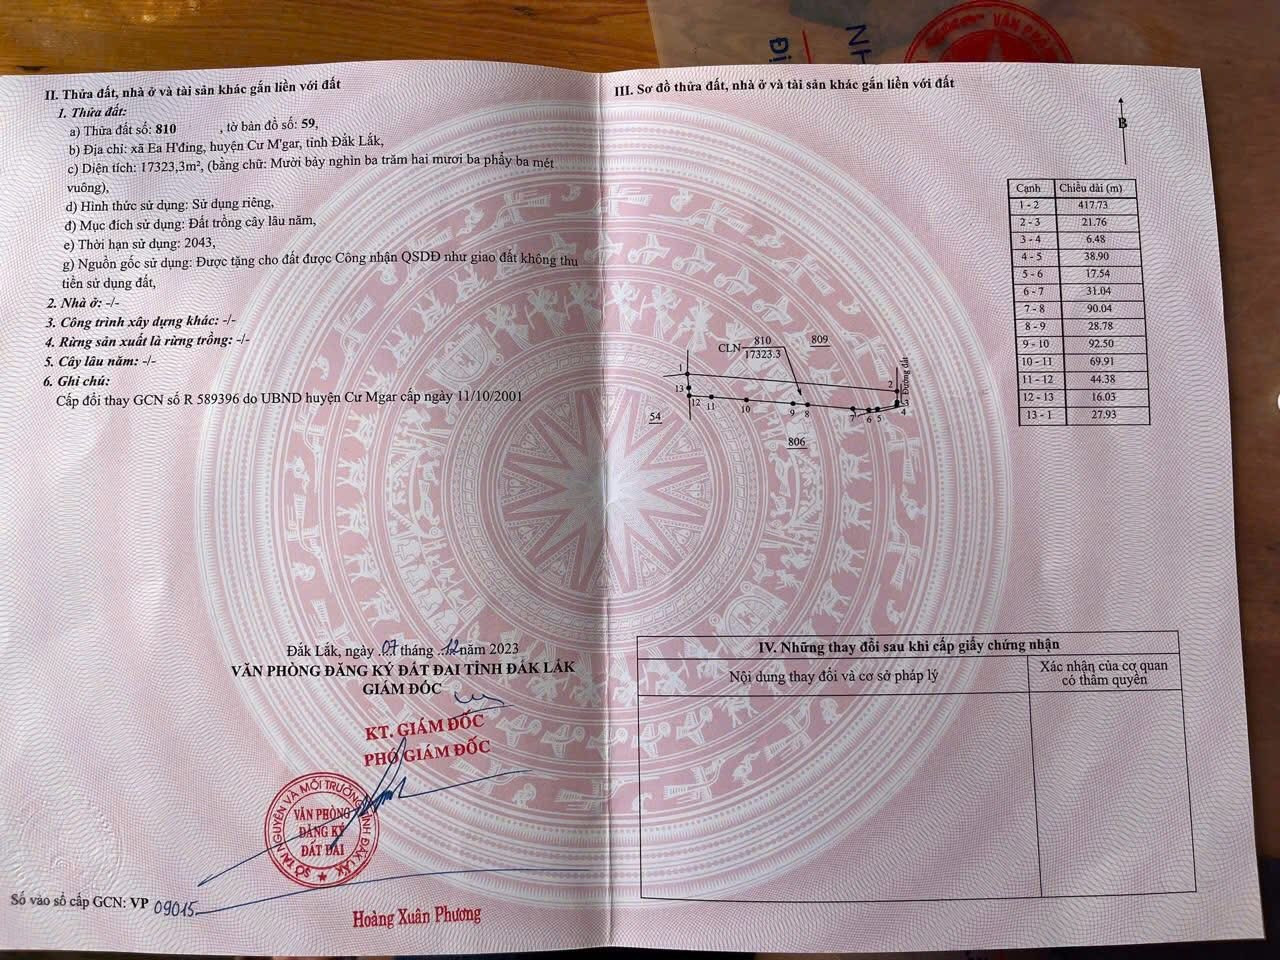 II. Thửa đất, nhà ở và tài sản khác gắn liền với đất
1. Thửa đất:
a) Thửa đất số: 810 , tờ bản đồ số: 59,
b) Địa chỉ: xã Ea H'đing, huyện Cư M'gar, tỉnh Đắk Lắk,
c) Diện tích: 17323,3m², (bằng chữ: Mười bảy nghìn ba trăm hai mươi ba phẩy ba mét
vuông),
d) Hình thức sử dụng: Sử dụng riêng,
đ) Mục đích sử dụng: Đất trồng cây lâu năm,
e) Thời hạn sử dụng: 2043,
g) Nguồn gốc sử dụng: Được tặng cho đất được Công nhận QSDĐ như giao đất không thu
tiền sử dụng đất,
2. Nhà ở: -/-
3. Công trình xây dựng khác: -/-
4. Rừng sản xuất là rừng trồng: -/-
5. Cây lâu năm: -/-
6. Ghi chú:
Cấp đổi thay GCN số R 589396 do UBND huyện Cư Mgar cấp ngày 11/10/2001
Đắk Lắk, ngày 07 tháng 12 năm 2023
VĂN PHÒNG ĐĂNG KÝ ĐẤT ĐAI TỈNH ĐẮK LẮK
GIÁM ĐỐC
KT. GIÁM ĐỐC
PHÓ GIÁM ĐỐC
SỞ TÀI NGUYÊN VÀ MÔI TRƯỜNG TỈNH ĐẮK LẮK
VĂN PHÒNG
ĐĂNG KÝ
ĐẤT ĐAI
Số vào sổ cấp GCN: VP 09015
Hoàng Xuân Phương
III. Sơ đồ thửa đất, nhà ở và tài sản khác gắn liền với đất
B
Cạnh Chiều dài (m)
1 - 2 417.73
2 - 3 21.76
3 - 4 6.48
4 - 5 38.90
5 - 6 17.54
6 - 7 31.04
7 - 8 90.04
8 - 9 28.78
9 - 10 92.50
10 - 11 69.91
11 - 12 44.38
12 - 13 16.03
13 - 1 27.93
CLN 810
17323.3
809
Đường đất
1
2
13
12 11 10 9 8 7 6 5 4 3
54
806
IV. Những thay đổi sau khi cấp giấy chứng nhận
Nội dung thay đổi và cơ sở pháp lý
Xác nhận của cơ quan
có thẩm quyền
VĂN PHÒ
NH
Đị